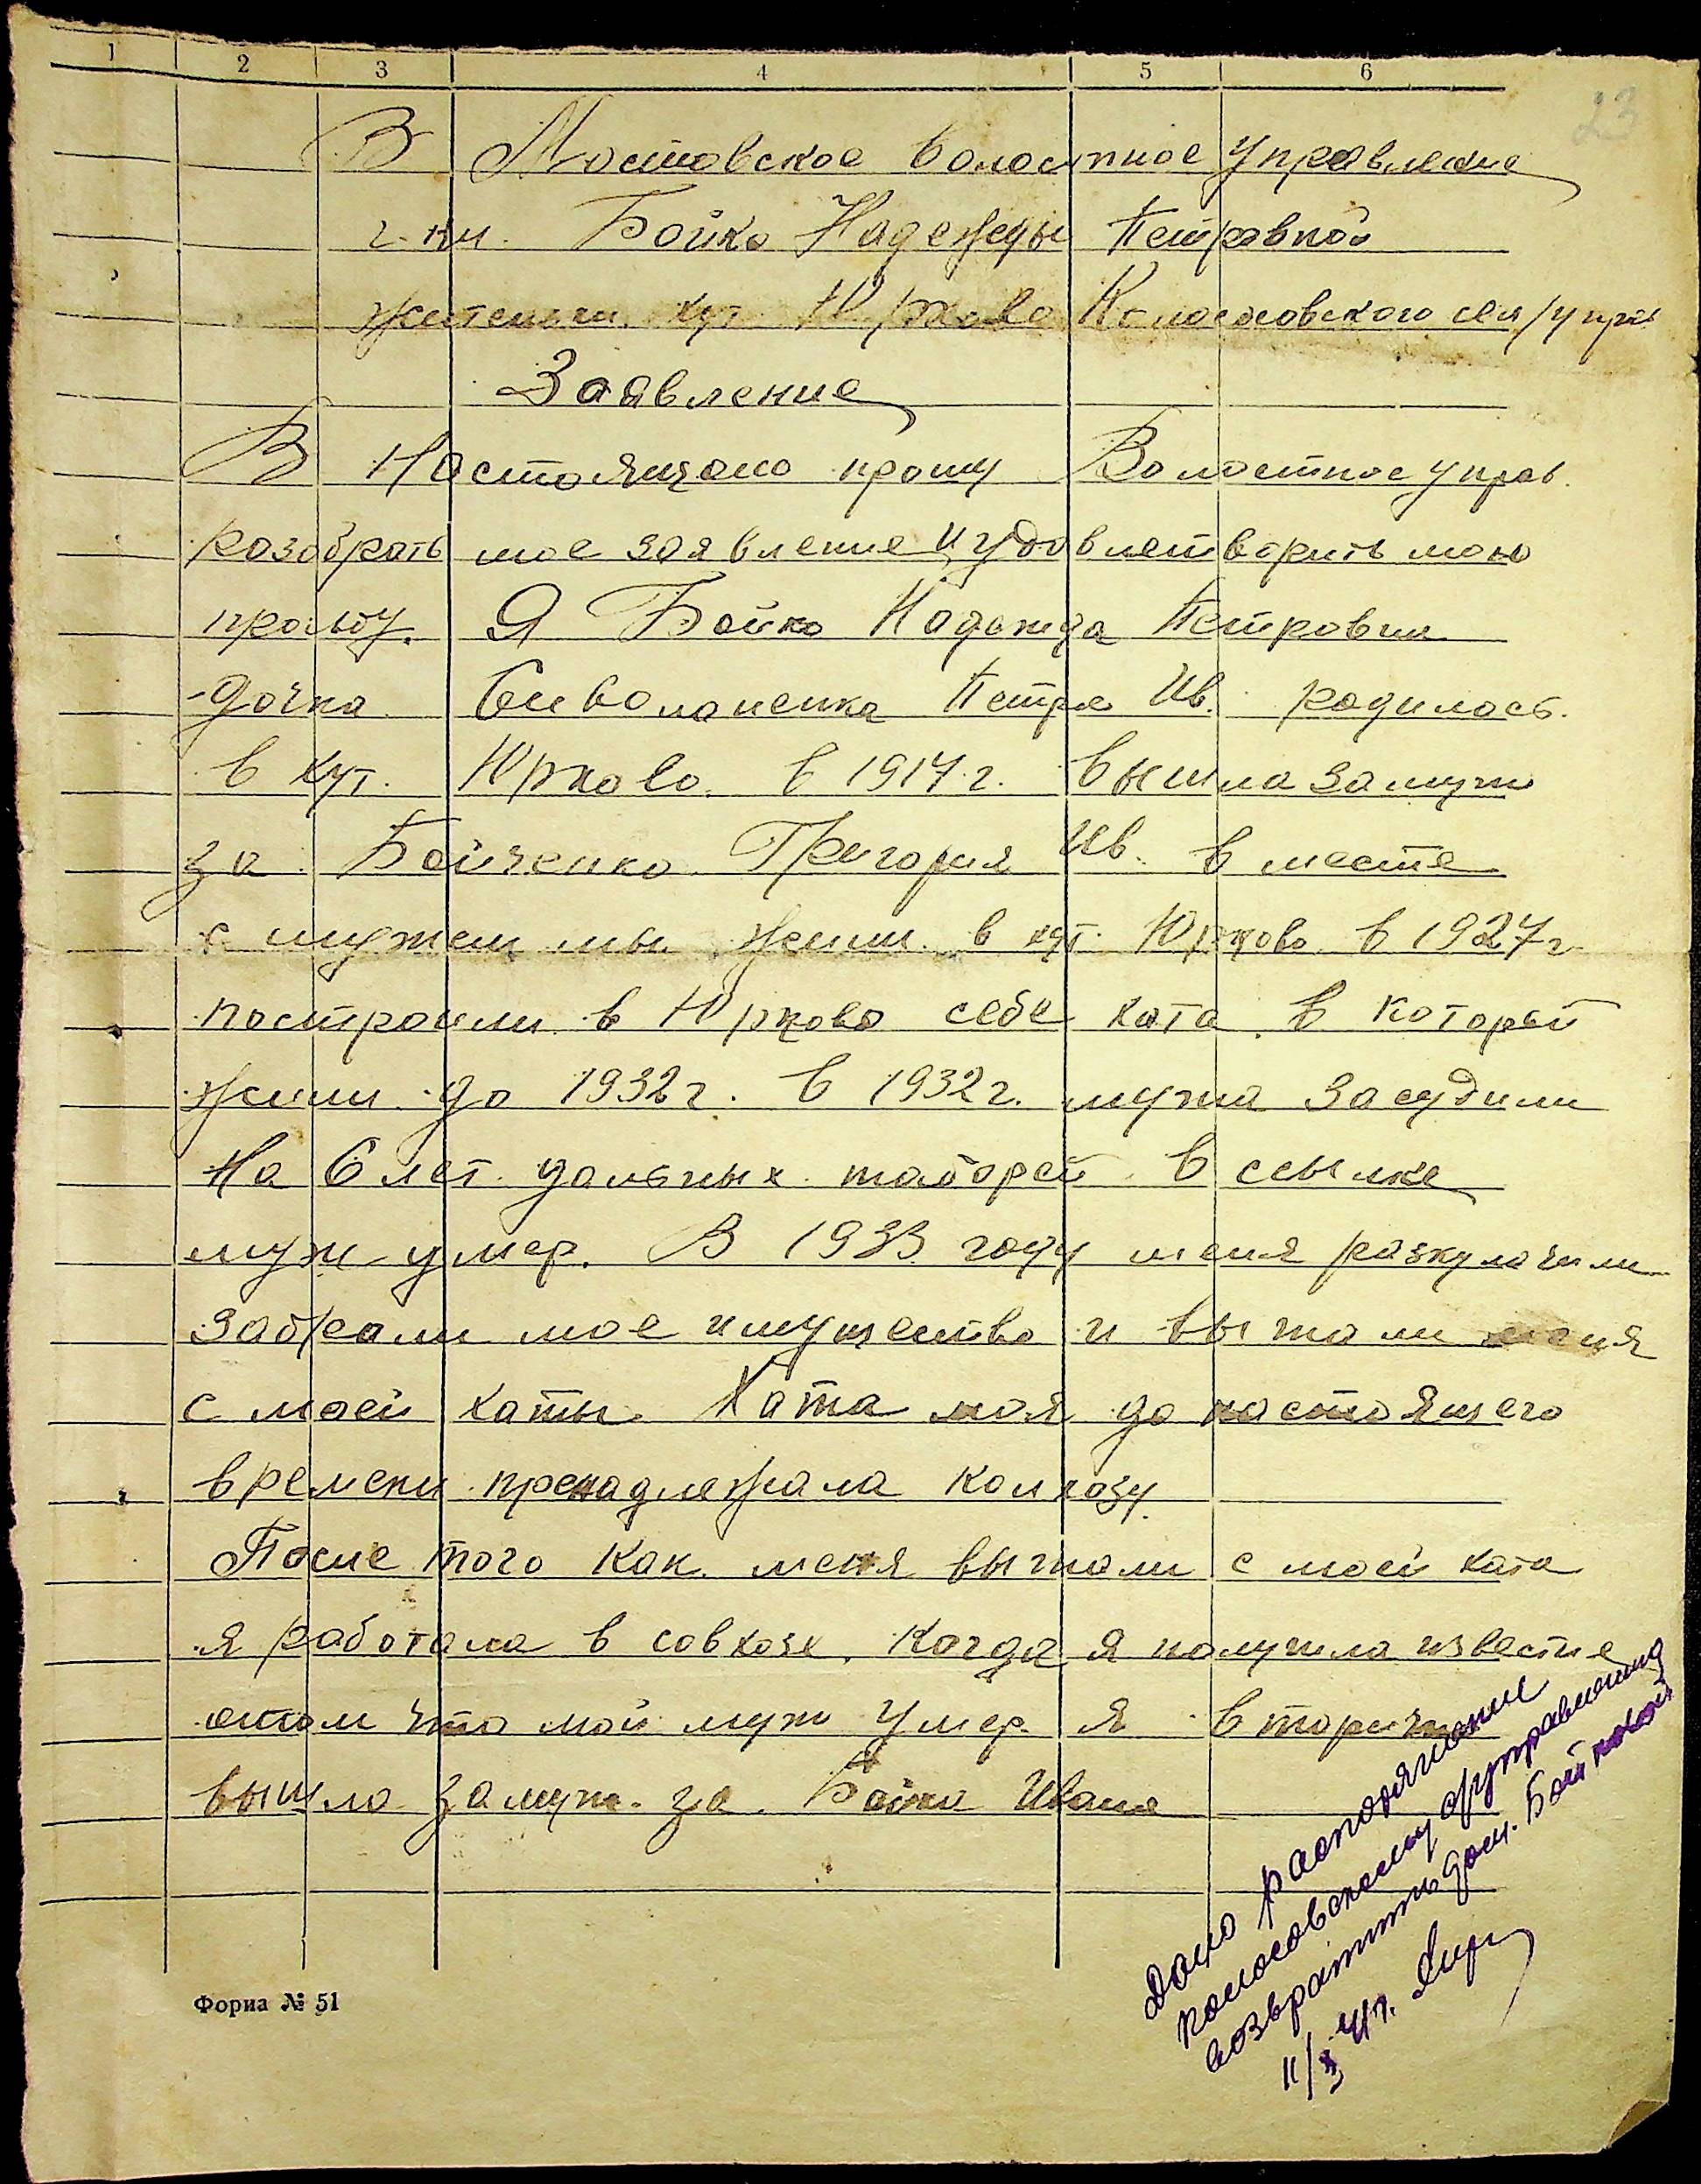 1 2 3 4 5 6
23
В Мостовское волостное управление
г-ки. Бойко Надежды Петравной
жительки хут. Юрково Колосовского сел/упра
Заявление
В Настоящемо прошу Волостное управ.
разобрать мое заявление и удовлетворить мою
прозьбу. Я Бойко Надежда Петровна
-дочка Сиволапенка Петра Ив. родилась.
в хут. Юрково. в 1917 г. вышла замуж
за Бойченко Григория Ив. в месте
с мужем мы жили в хут. Юрково в 1927 г
построили в Юрково себе хата. в которой
жили до 1932 г. в 1932 г. мужа засудили
На 6 лет дальных таборей в ссылке
муж умер. В 1933 году меня разкулачили
забрали мое имущество и выгнали меня
с моей хаты. Хата моя до настоящего
времени пренадлежала колхозу.
После того как меня выгнали с моей хата
я работала в совхозе. Когда я получила известие
отом что мой муж умер я вторично
вышла замуж за Бойка Ивана
Дано распоряжение
колосовскому с/управлению
возвратить дом. Бойковой
11/3 42.
Форма № 51